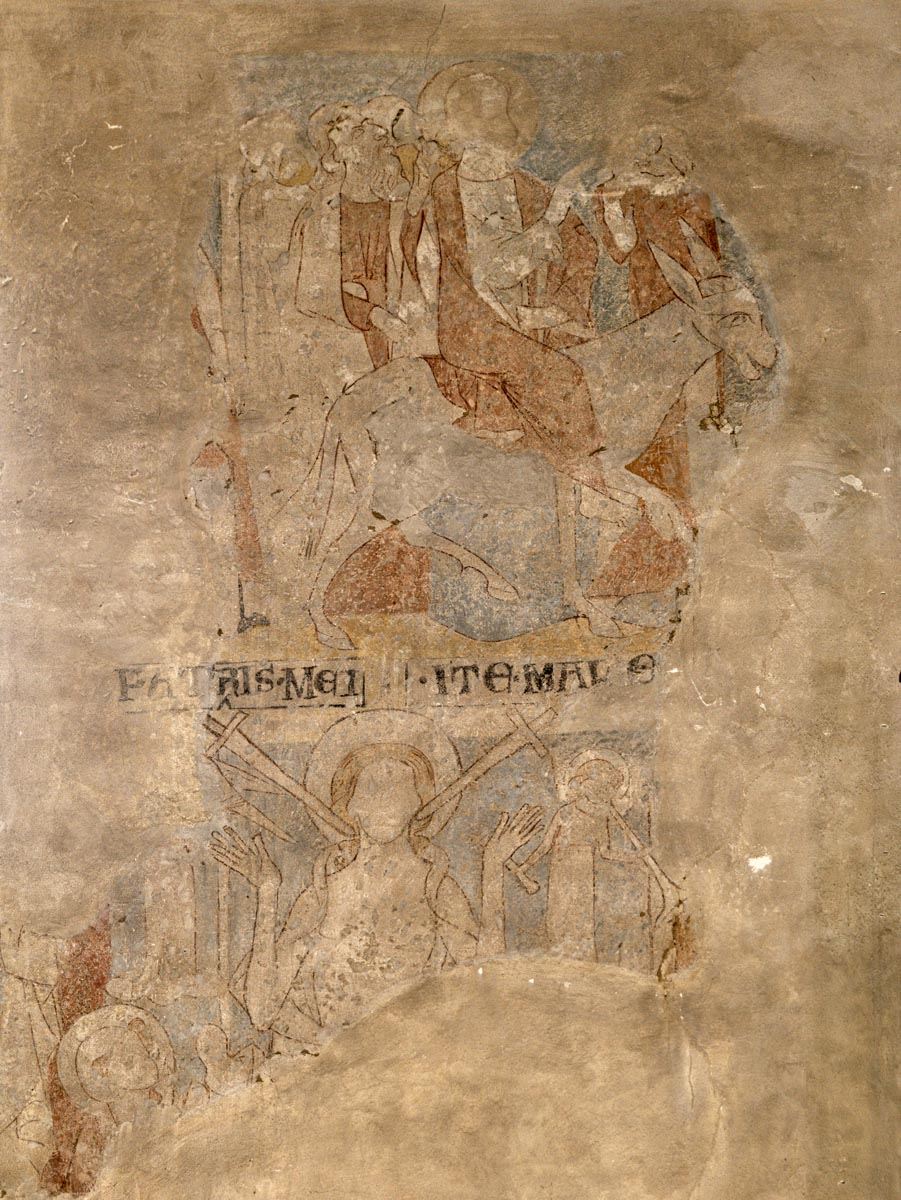 PATRIS·MEI · ITE·MALE